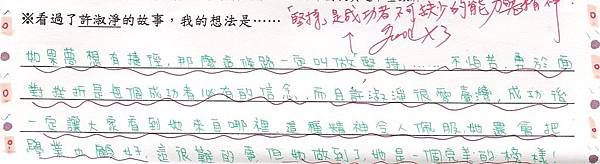 「堅持」是成功者不可缺少的能力及精神
※看過了許淑淨的故事，我的想法是……
Good X3
如果夢想有捷徑,那麼這條路一定叫做堅持……不怕苦,勇於面
對挫折是每個成功者必有的信念,而且許淑淨很愛臺灣,成功後
一定讓大家看到她來自哪裡,這種精神令人佩服,她還要把
學業也顧好,這很難的事但她做到了,她是一個完美的榜樣!